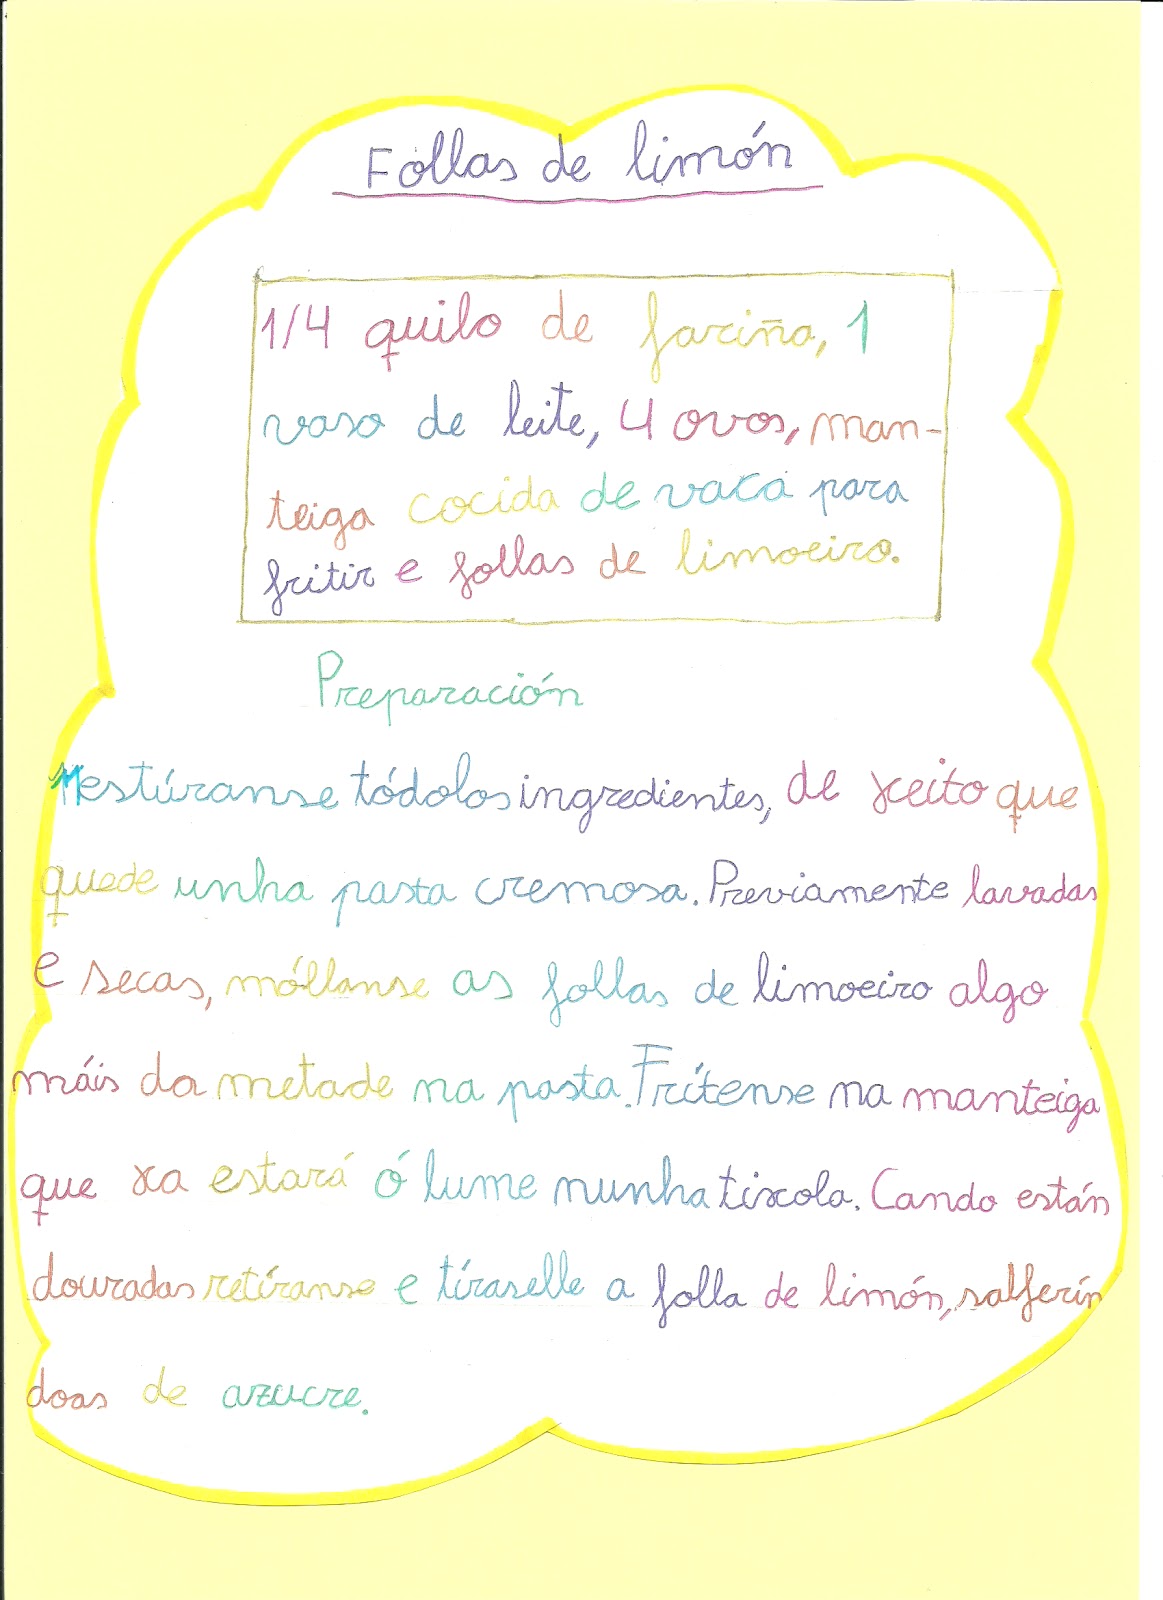 Follas de limón
1/4 quilo de fariña, 1
vaso de leite, 4 ovos, man-
teiga cocida de vaca para
fritir e follas de limoeiro.
Preparación
Mestúranse tódolos ingredientes, de xeito que
quede unha pasta cremosa. Previamente lavadas
e secas, móllanse as follas de limoeiro algo
máis da metade na pasta. Frítense na manteiga
que xa estará ó lume nunha tixola. Cando están
douradas retíranse e tíraselle a folla de limón, salferín
doas de azucre.